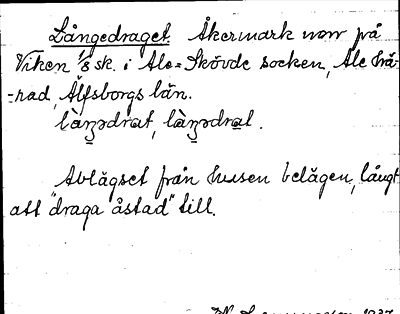 Långedraget Åkermark norr på
Viken 1/8 sk. i Ale-Skövde socken, Ale hä-
-rad, Älfsborgs län.
Avlägset från husen belägen, långt
att "draga åstad" till.
1937